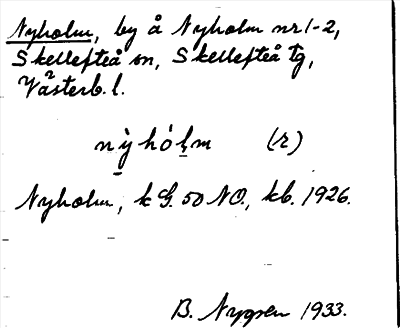 Nyholm, by å Nyholm nr 1-2,
Skellefteå sn, Skellefteå tg,
Västerb. l.
nỳhólm (r)
Nyholm, k G. 50 NO., kb. 1926.
B. Nygren 1933.